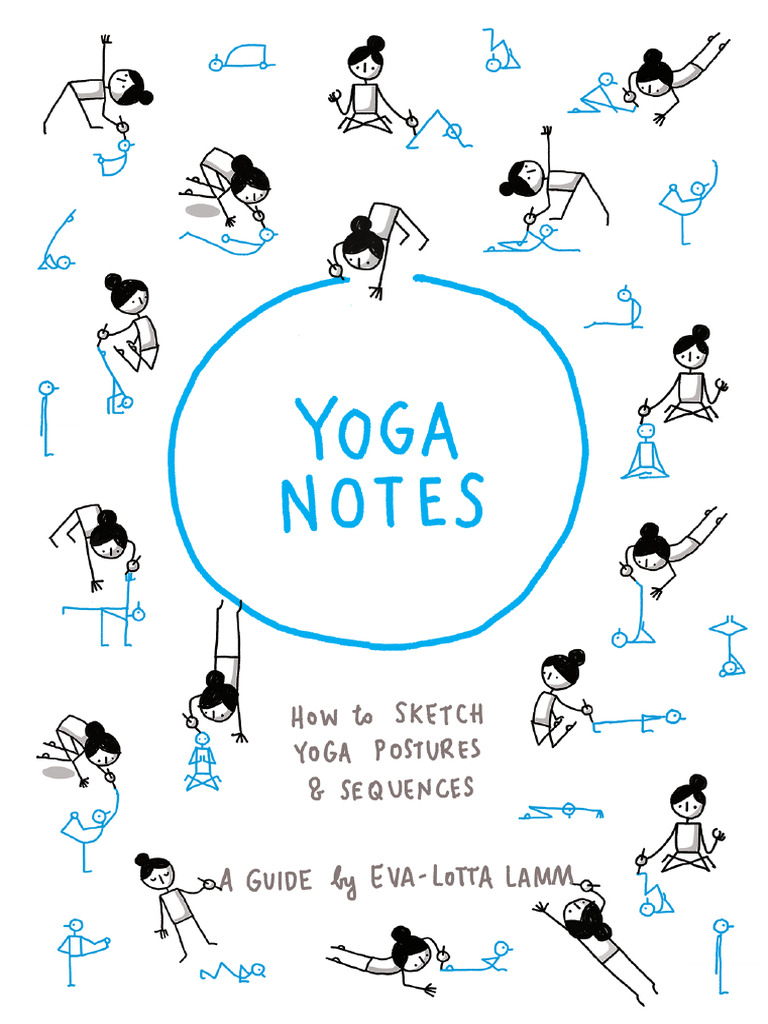 YOGA
NOTES
HOW to SKETCH
YOGA POSTURES
& SEQUENCES
A GUIDE by EVA-LOTTA LAMM